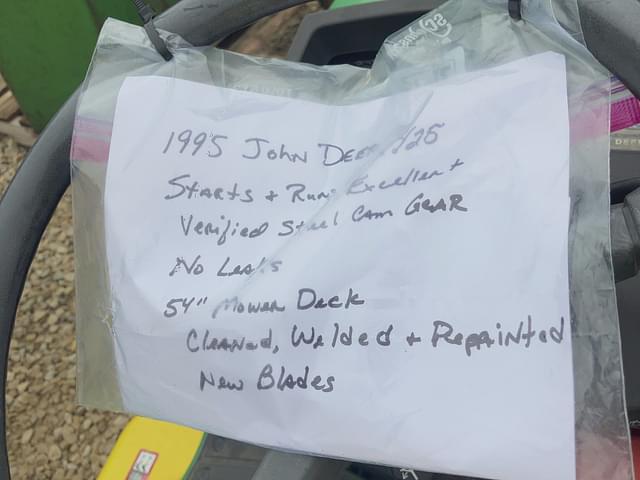 1995 John Deere
Starts + Runs Excellent
Verified Steel Cam Gear
No Leaks
54" Mower Deck
Cleaned, Welded + Repainted
New Blades